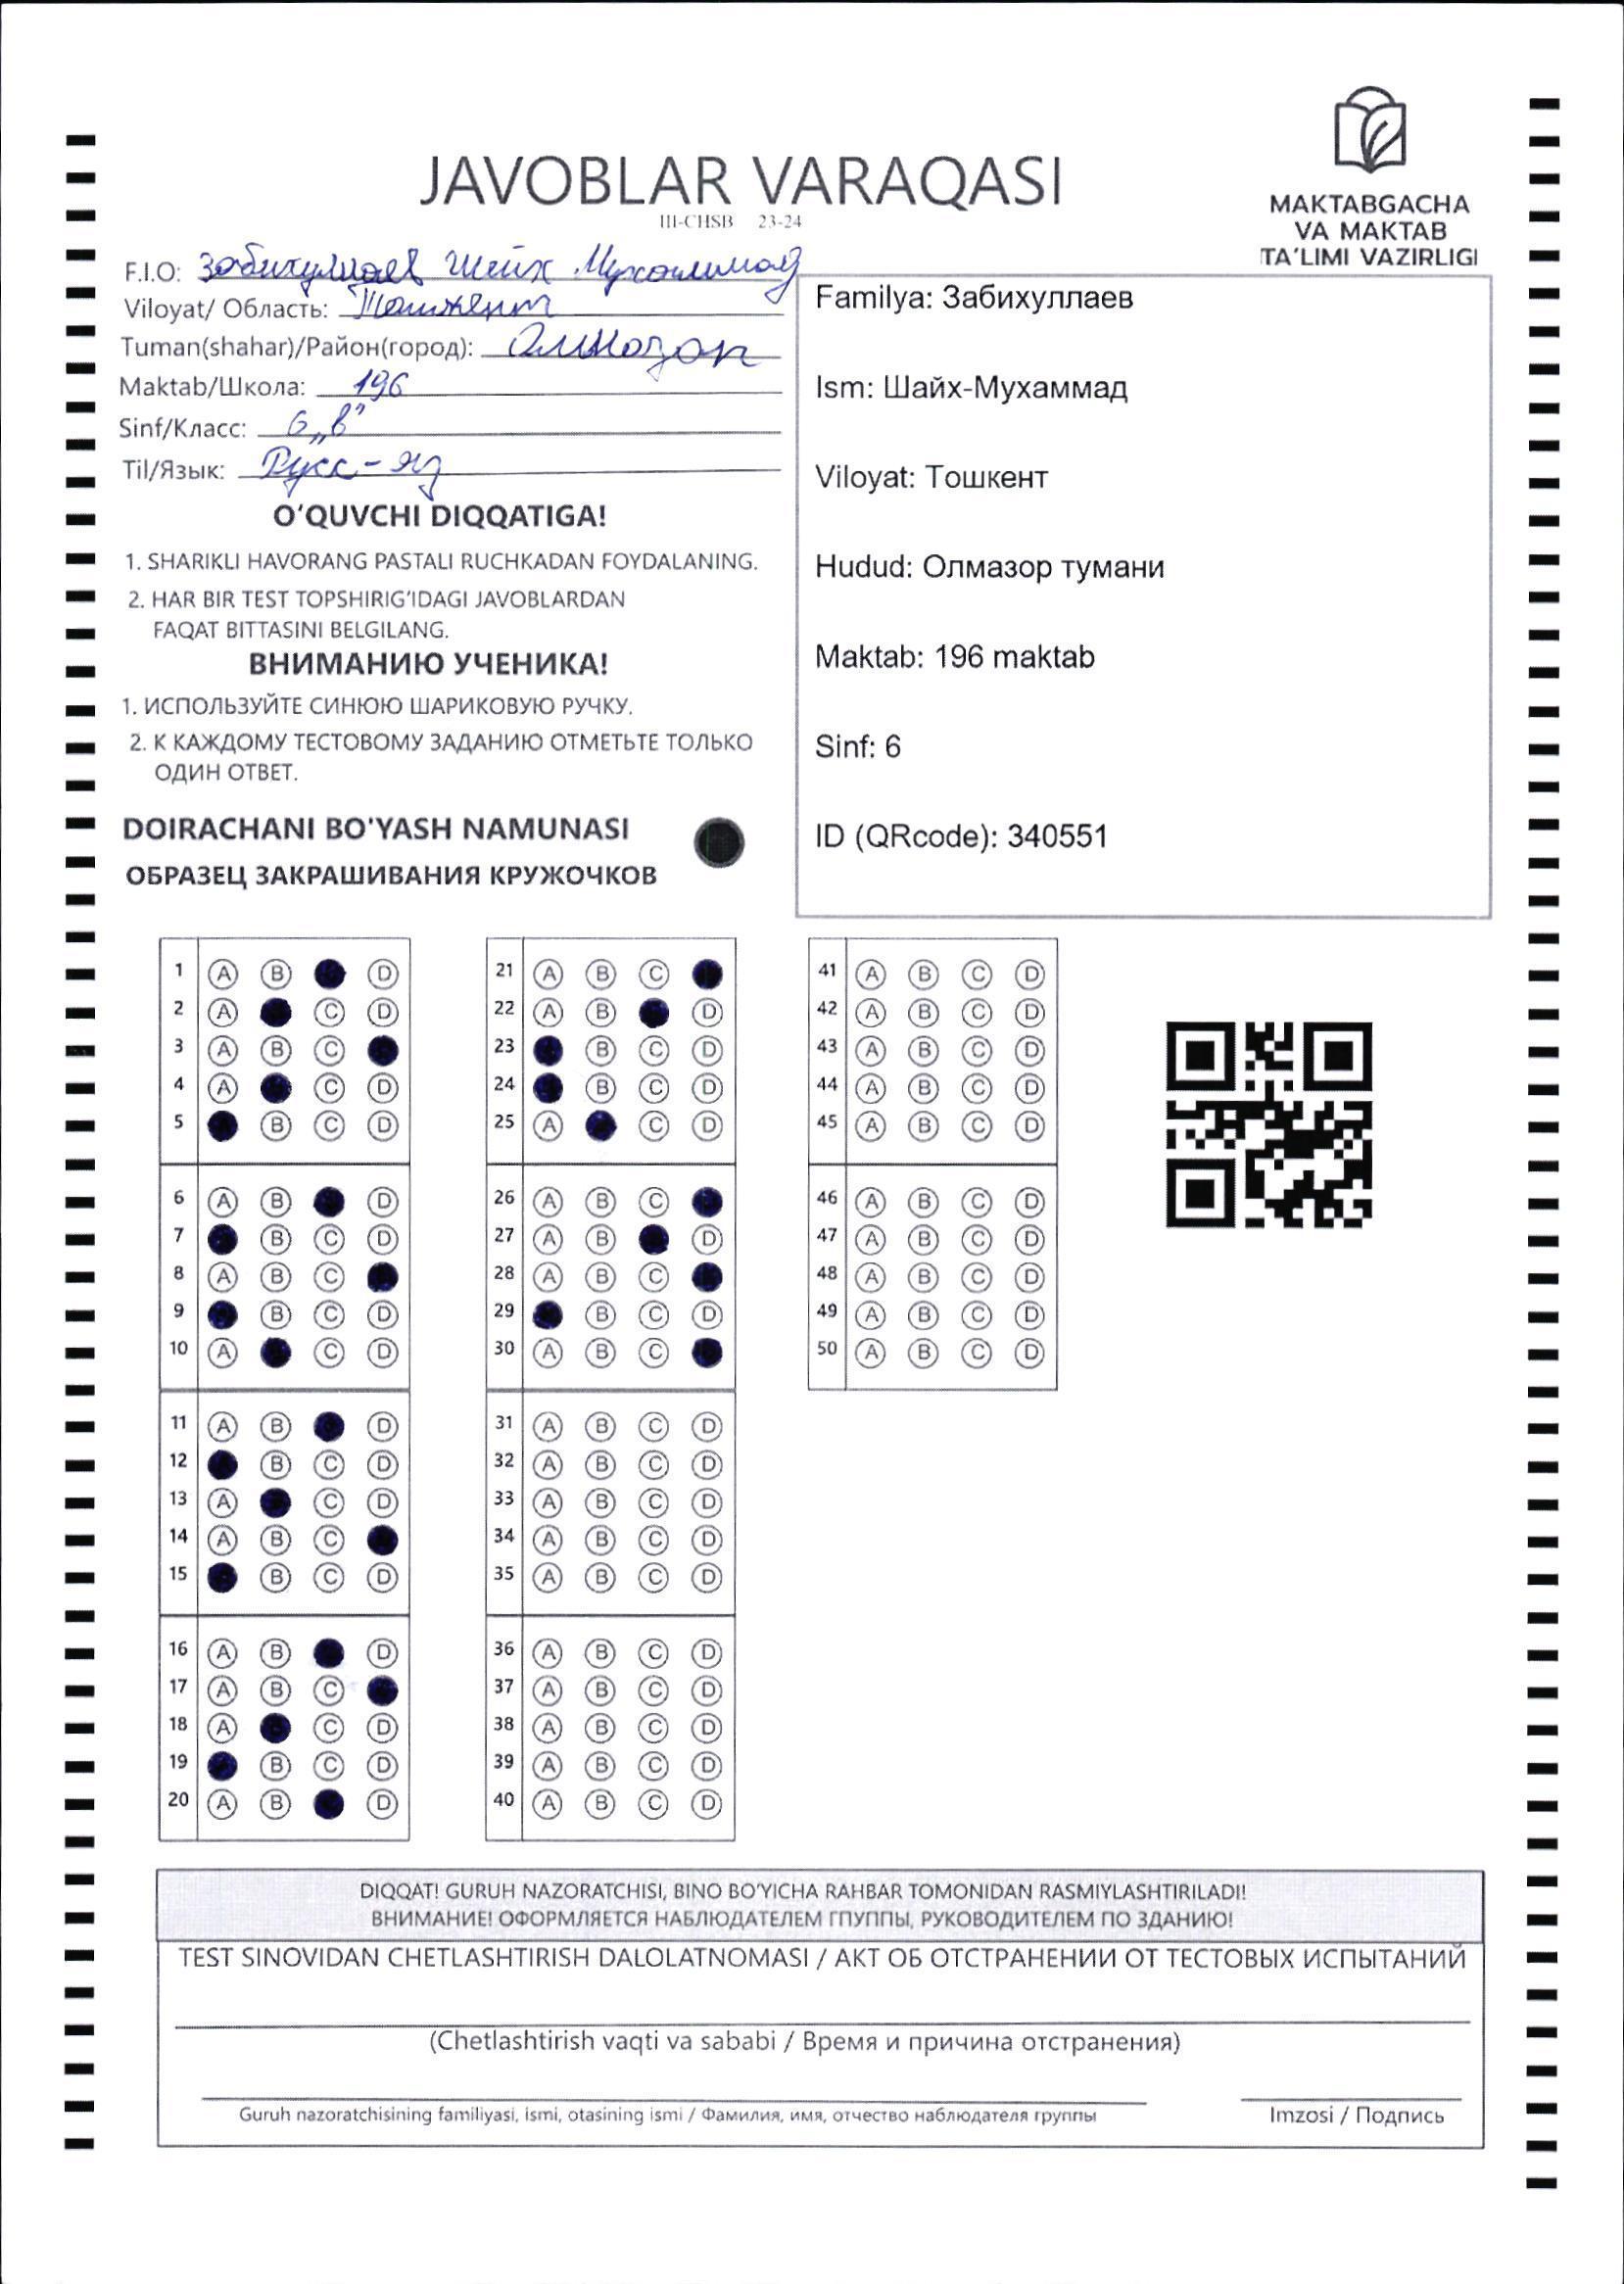 JAVOBLAR VARAQASI
III-CHSB 23-24
MAKTABGACHA
VA MAKTAB
TA'LIMI VAZIRLIGI
F.I.O: Забихуллаев Шейх Мухаммад
Viloyat/ Область: Ташкент
Tuman(shahar)/Район(город): Олмазор
Maktab/Школа: 196
Sinf/Класс: 6 „В”
Til/Язык: Русс-яз
O'QUVCHI DIQQATIGA!
1. SHARIKLI HAVORANG PASTALI RUCHKADAN FOYDALANING.
2. HAR BIR TEST TOPSHIRIG'IDAGI JAVOBLARDAN
FAQAT BITTASINI BELGILANG.
ВНИМАНИЮ УЧЕНИКА!
1. ИСПОЛЬЗУЙТЕ СИНЮЮ ШАРИКОВУЮ РУЧКУ.
2. К КАЖДОМУ ТЕСТОВОМУ ЗАДАНИЮ ОТМЕТЬТЕ ТОЛЬКО
ОДИН ОТВЕТ.
DOIRACHANI BO'YASH NAMUNASI
ОБРАЗЕЦ ЗАКРАШИВАНИЯ КРУЖОЧКОВ
Familya: Забихуллаев
Ism: Шайх-Мухаммад
Viloyat: Тошкент
Hudud: Олмазор тумани
Maktab: 196 maktab
Sinf: 6
ID (QRcode): 340551
1 A B D
2 A C D
3 A B C
4 A C D
5 B C D
6 A B D
7 B C D
8 A B C
9 B C D
10 A C D
11 A B D
12 B C D
13 A C D
14 A B C
15 B C D
16 A B D
17 A B C
18 A C D
19 B C D
20 A B D
21 A B C
22 A B D
23 B C D
24 B C D
25 A C D
26 A B C
27 A B D
28 A B C
29 B C D
30 A B C
31 A B C D
32 A B C D
33 A B C D
34 A B C D
35 A B C D
36 A B C D
37 A B C D
38 A B C D
39 A B C D
40 A B C D
41 A B C D
42 A B C D
43 A B C D
44 A B C D
45 A B C D
46 A B C D
47 A B C D
48 A B C D
49 A B C D
50 A B C D
DIQQAT! GURUH NAZORATCHISI, BINO BO'YICHA RAHBAR TOMONIDAN RASMIYLASHTIRILADI!
ВНИМАНИЕ! ОФОРМЛЯЕТСЯ НАБЛЮДАТЕЛЕМ ГПУППЫ, РУКОВОДИТЕЛЕМ ПО ЗДАНИЮ!
TEST SINOVIDAN CHETLASHTIRISH DALOLATNOMASI / АКТ ОБ ОТСТРАНЕНИИ ОТ ТЕСТОВЫХ ИСПЫТАНИЙ
(Chetlashtirish vaqti va sababi / Время и причина отстранения)
Guruh nazoratchisining familiyasi, ismi, otasining ismi / Фамилия, имя, отчество наблюдателя группы
Imzosi / Подпись